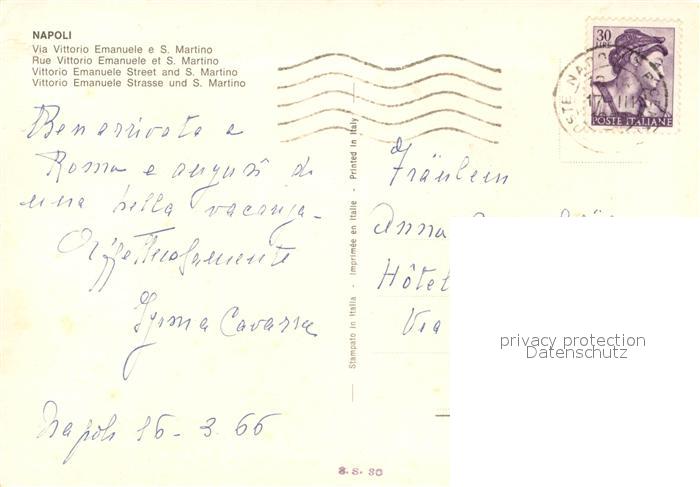 NAPOLI
Via Vittorio Emanuele e S. Martino
Rue Vittorio Emanuele et S. Martino
Vittorio Emanuele Street and S. Martino
Vittorio Emanuele Strasse und S. Martino
Benarrivata a
Roma e auguri di
una bella vacanza -
Affettuosamente
Cavarra
Napoli 16 - 3. 66
Stampato in Italia - Imprimée en Italie - Printed in Italy
30
LIRE
POSTE ITALIANE
Fräulein
Anna
Hôtel
Via
privacy protection
Datenschutz
S. S. 30